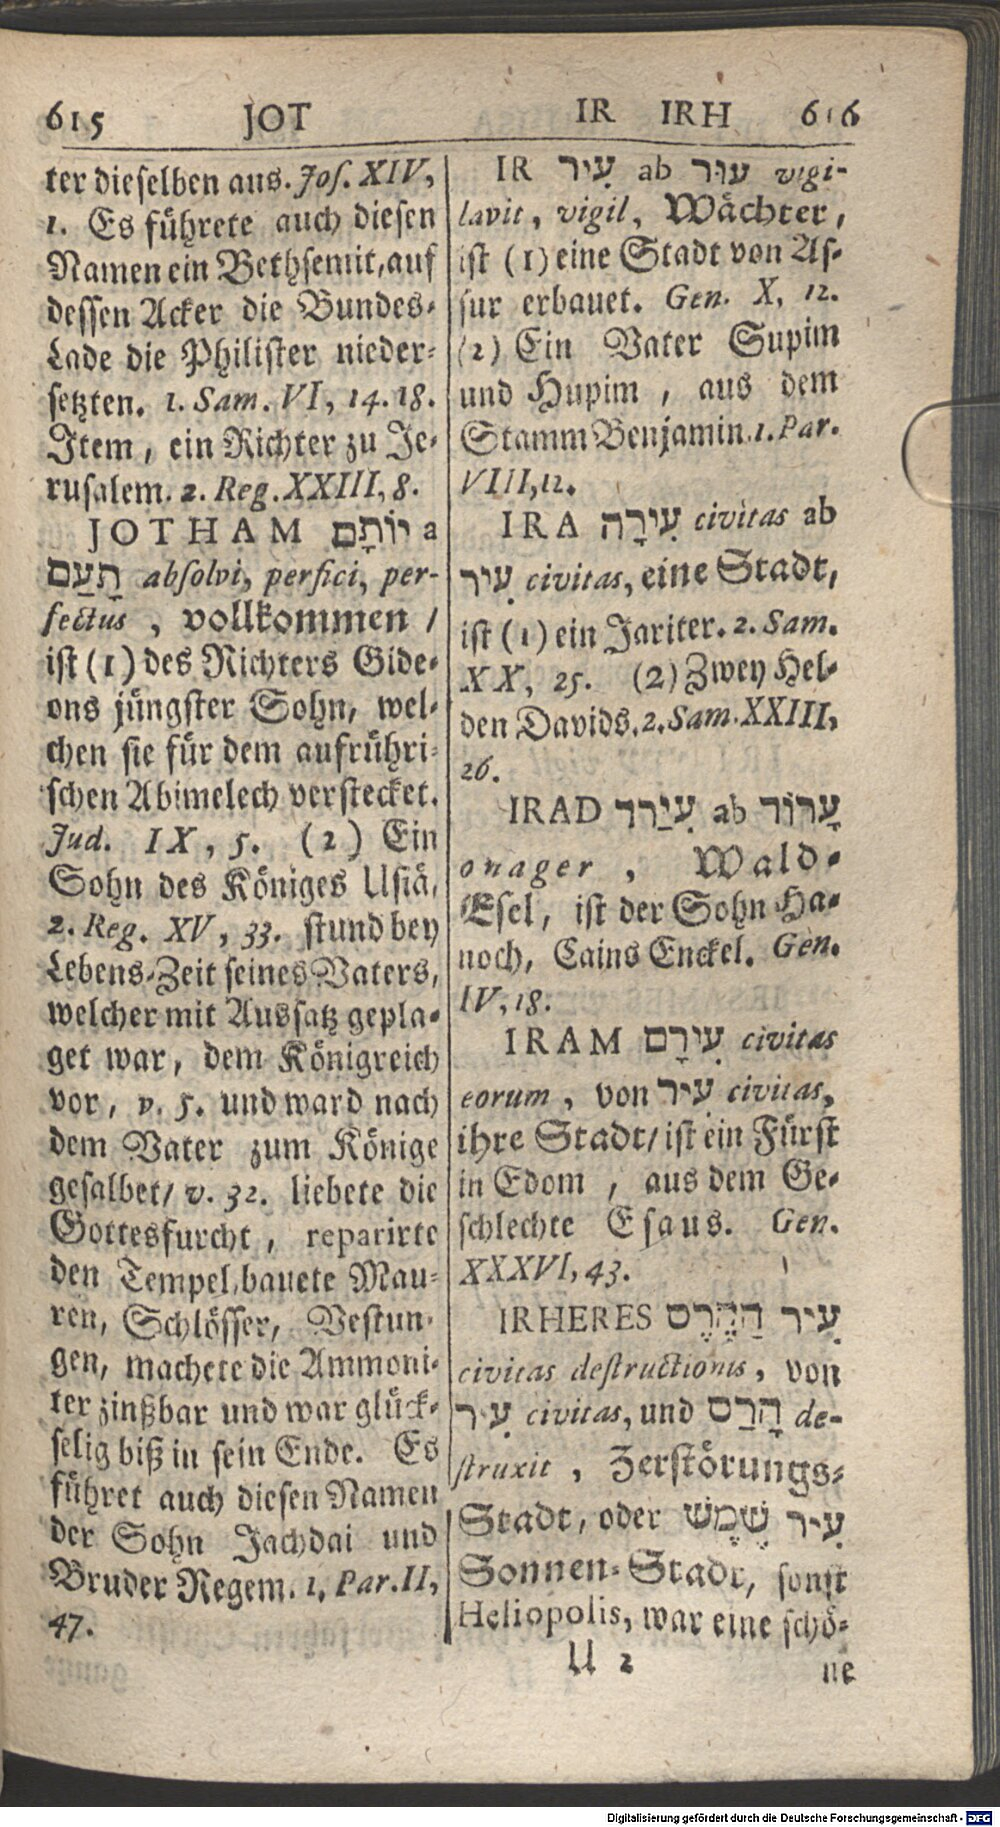 615 JOT
ter dieselben aus. Jos. XIV,
1. Es führete auch diesen
Namen ein Bethsemit, auf
dessen Acker die Bundes-
Lade die Philister nieder-
setzten. 1. Sam. VI, 14. 18.
Item, ein Richter zu Je-
rusalem. 2. Reg. XXIII, 8.
JOTHAM יוֹתָם a
תָעַם absolvi, perfici, per-
fectus, vollkommen /
ist (1) des Richters Gide-
ons jüngster Sohn, wel-
chen sie für dem aufrühri-
schen Abimelech verstecket.
Jud. IX, 5. (2) Ein
Sohn des Königes Usiä,
2. Reg. XV, 33. stund bey
Lebens-Zeit seines Vaters,
welcher mit Aussatz gepla-
get war, dem Königreich
vor, v. 5. und ward nach
dem Vater zum Könige
gesalbet / v. 32. liebete die
Gottesfurcht, reparirte
den Tempel, bauete Mau-
ren, Schlösser, Vestun-
gen, machete die Ammoni-
ter zinßbar und war glück-
selig biß in sein Ende. Es
führet auch diesen Namen
der Sohn Jachdai und
Bruder Regem. 1. Par. II,
47.
IR IRH 616
IR עִיר ab עוּר vigi-
lavit, vigil, Wächter,
ist (1) eine Stadt von As-
sur erbauet. Gen. X, 12.
(2) Ein Vater Supim
und Hupim, aus dem
Stamm Benjamin. 1. Par.
VIII, 12.
IRA עִירָה civitas ab
עִיר civitas, eine Stadt,
ist (1) ein Jariter. 2. Sam.
XX, 25. (2) Zwey Hel-
den Davids. 2. Sam. XXIII,
26.
IRAD עִירַד ab עָרוֹד
onager, Wald-
Esel, ist der Sohn Ha-
noch, Cains Enckel. Gen.
IV, 18.
IRAM עִירָם civitas
eorum, von עִיר civitas,
ihre Stadt / ist ein Fürst
in Edom, aus dem Ge-
schlechte Esaus. Gen.
XXXVI, 43.
IRHERES עִיר הַהֶרֶס
civitas destructionis, von
עִיר civitas, und הָרַס de-
struxit, Zerstörungs-
Stadt, oder עִיר שֶׁמֶשׁ
Sonnen-Stadt, sonst
Heliopolis, war eine schö-
U 2 ne
Digitalisierung gefördert durch die Deutsche Forschungsgemeinschaft - DFG